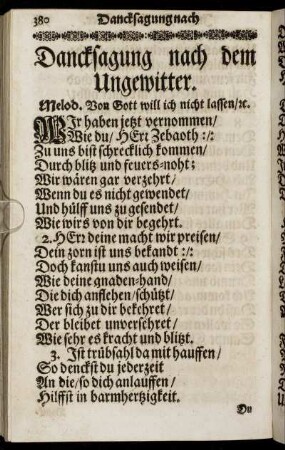 380 Dancksagung nach
Dancksagung nach dem
Ungewitter.
Melod. Von Gott will ich nicht lassen/ꝛc.
WIr haben jetzt vernommen/
Wie du/ HErr Zebaoth :/:
Zu uns bist schrecklich kommen/
Durch blitz und feuers-noht;
Wir wären gar verzehrt/
Wenn du es nicht gewendet/
Und hülff uns zu gesendet/
Wie wirs von dir begehrt.
2. HErr deine macht wir preisen/
Dein zorn ist uns bekandt :/:
Doch kanstu uns auch weisen/
Wie deine gnaden-hand/
Die dich anflehen/schützt/
Wer sich zu dir bekehret/
Der bleibet unversehret/
Wie sehr es kracht und blitzt.
3. Ist trübsahl da mit hauffen/
So denckst du jederzeit
An die/so dich anlauffen/
Hilffst in barmhertzigkeit.
Du